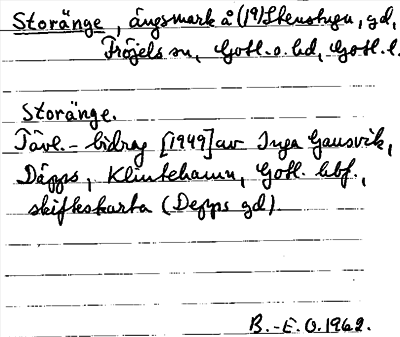 Storänge, ängsmark å (19) Stenstugu, gd,
Fröjels sn, Gotl. s. hd, Gotl. l.
Storänge.
Tävl.-bidrag [1949] av Inga Gausvik,
Däpps, Klintehamn, Gotl. hbf.,
skifteskarta (Depps gd).
B.-E. O. 1962.